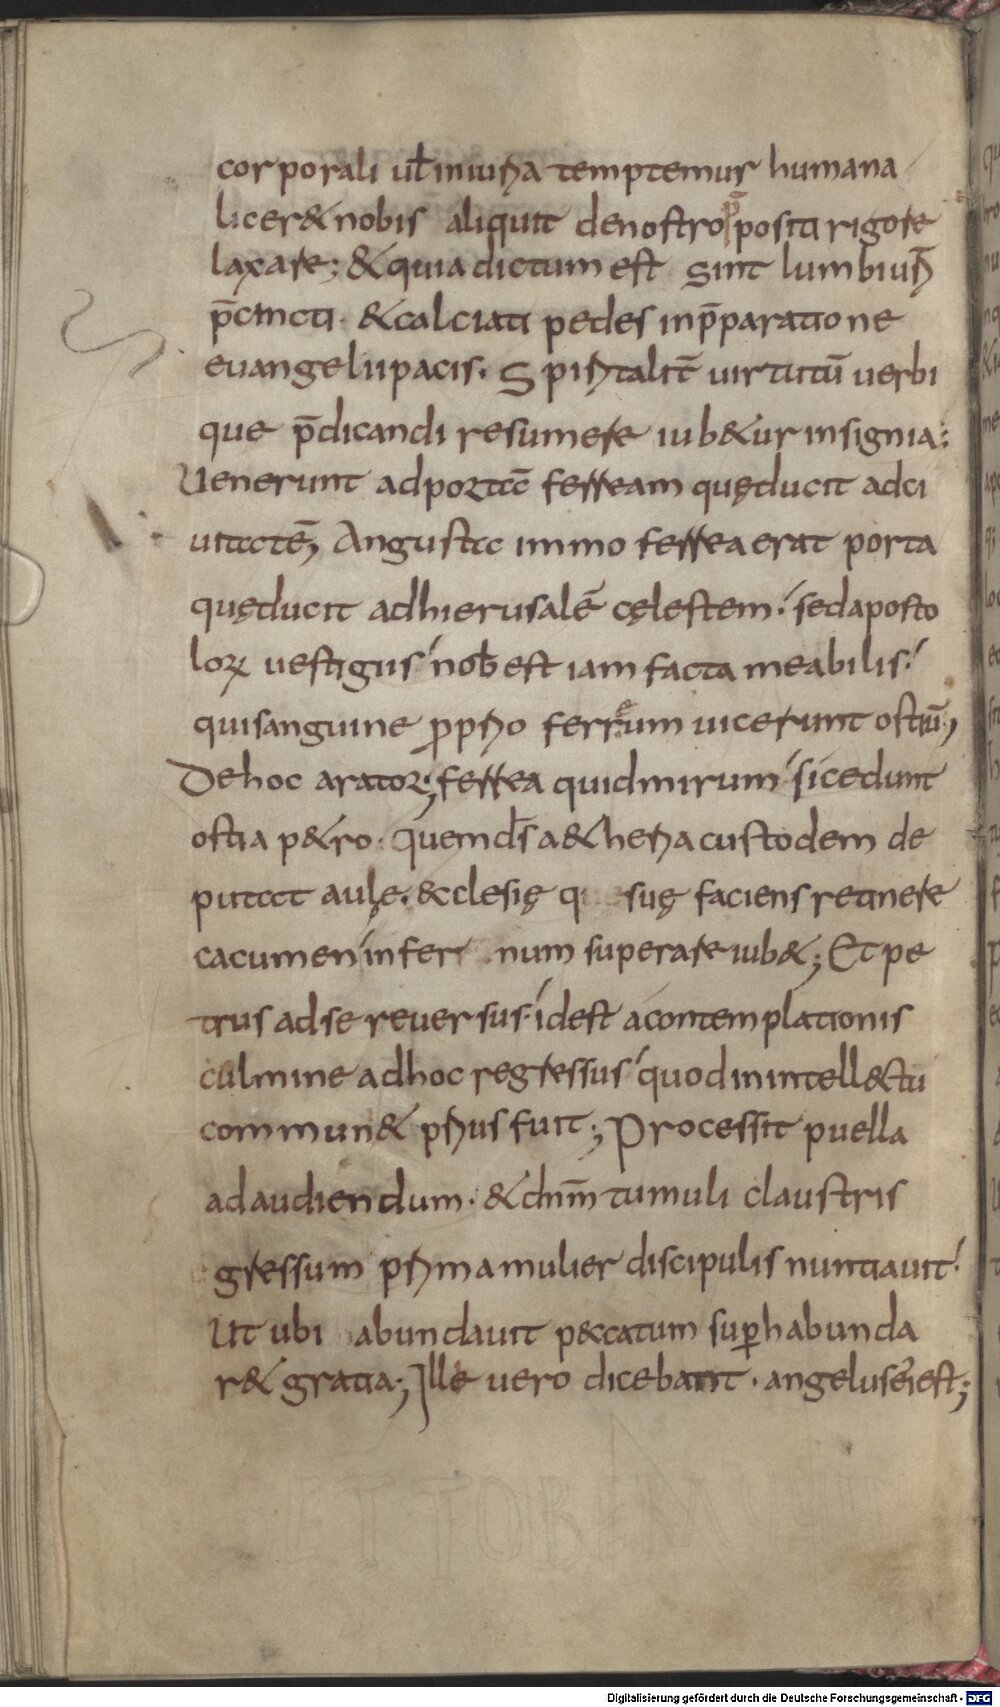 corporali ul̄ iniuria temptemur humana
licer& nobis aliquit denostro p̄positi rigore
laxare; &quia dictum est Sint lumbi ur̄i
p̄cincti· &calciati pedes inp̄paratione
euangelii pacis· Spiritalit̄ uirtutū uerbi
que p̄dicandi resumere iub&ur insignia;
Uenerunt adportā ferream quęducit adci
uitatē; Angusta immo ferrea erat porta
quęducit adhierusalē cęlestem· sedaposto
loꝝ uestigiis nob̄ est iam facta meabilis·
quisanguine proprio ferreum uicerunt ostiū;
Dehoc arator; ferrea quidmirum sicedunt
ostia p&ro· Quem d̄s a&heria custodem de
putat aulę· &clesię q suę faciens retinere
cacumen infer num superare iub&; Et pe
trus adse reuersus· idest acontemplationis
culmine adhoc regressus quod inintell&tu
commun& prius fuit; Processit puella
adaudiendum· &dnm̄ tumuli claustris
gressum prima mulier discipulis nuntiauit·
Ut ubi abundauit p&catum suꝑhabunda
r& gratia; Ille uero dicebant· angelus ei; est;
Digitalisierung gefördert durch die Deutsche Forschungsgemeinschaft - DFG